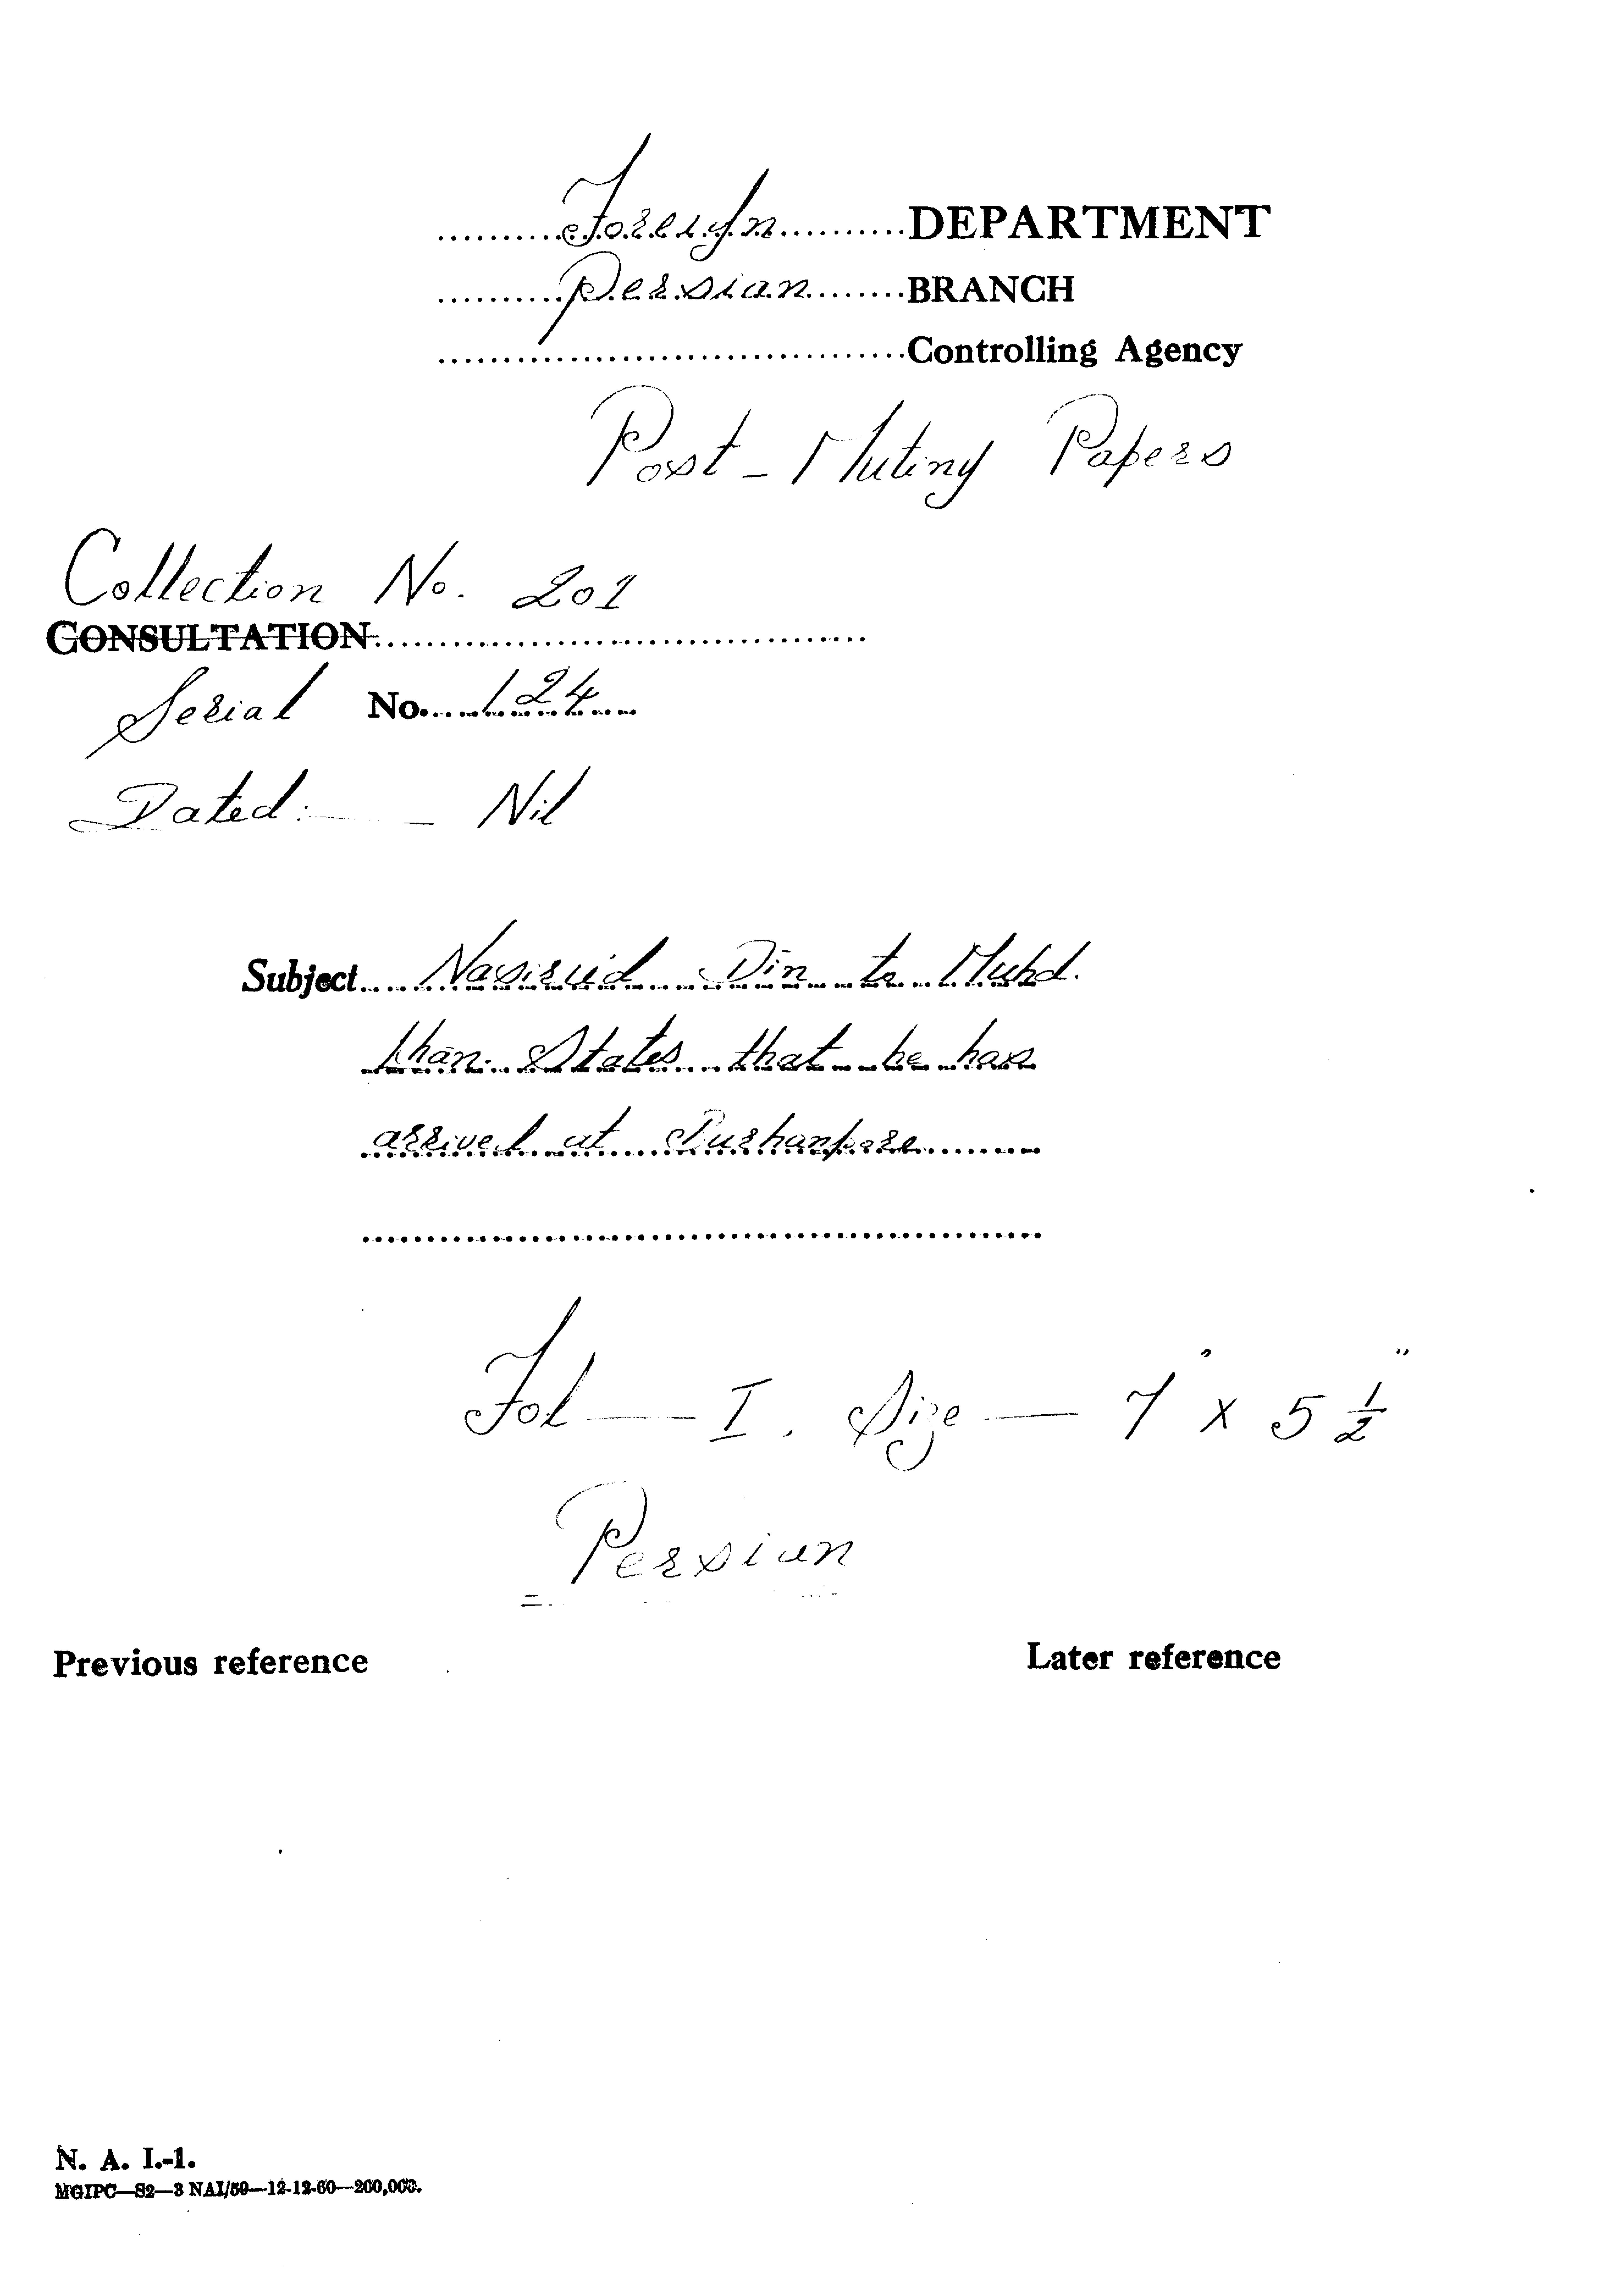 Foreign DEPARTMENT
Persian BRANCH
Controlling Agency
Post-Mutiny Papers
Collection No. 201
CONSULTATION
Serial No. 124
Dated:- - Nil
Subject Nasirud Din to Muhd.
khan States that he has
arrived at
Fol — I. Size — 7" x 5 ½"
Persian
Previous reference Later reference
N. A. I.-1.
MGIPC—S2—3 NAI/59—12-12-60—200,000.